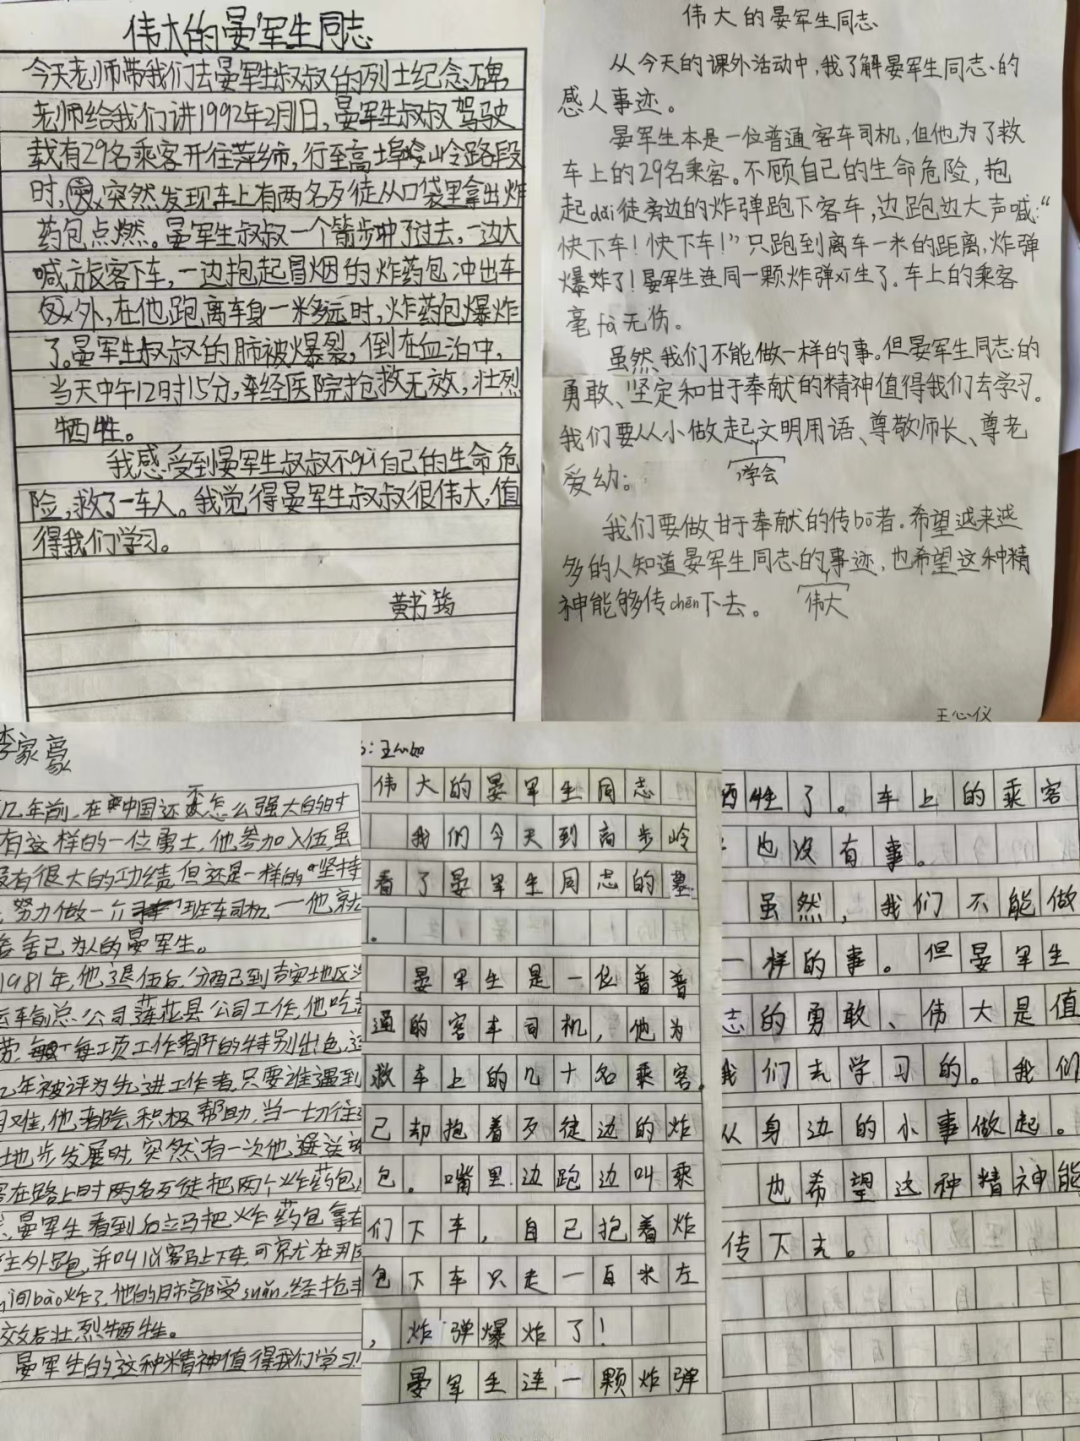 伟大的晏军生同志
今天老师带我们去晏军生叔叔的列士纪念碑
老师给我们讲1992年2月1日,晏军生叔叔驾驶
载有29名乘客开往萍乡市,行至高埠岭路段
时,突然发现车上有两名歹徒从口袋里拿出炸
药包点燃。晏军生叔叔一个箭步冲了过去,一边大
喊旅客下车,一边抱起冒烟的炸药包冲出车
外,在他跑离车身一米多远时,炸药包爆炸
了。晏军生叔叔的肺被爆裂,倒在血泊中,
当天中午12时15分,经医院抢救无效,壮烈
牺牲。
我感受到晏军生叔叔不gù自己的生命危
险,救了一车人。我觉得晏军生叔叔很伟大,值
得我们学习。
黄书筠
伟大的晏军生同志
从今天的课外活动中,我了解晏军生同志的
感人事迹。
晏军生本是一位普通客车司机,但他为了救
车上的29名乘客。不顾自己的生命危险,抱
起dǎi徒旁边的炸弹跑下客车,边跑边大声喊:“
快下车!快下车!”只跑到离车一米的距离,炸弹
爆炸了!晏军生连同一颗炸弹xī生了。车上的乘客
毫fà无伤。
虽然我们不能做一样的事。但晏军生同志的
勇敢、坚定和甘于奉献的精神值得我们去学习。
我们要从小做起文明用语、尊敬师长、尊老
学会
爱幼;
我们要做甘于奉献的传bō者。希望越来越
多的人知道晏军生同志的事迹,也希望这种精
伟大
神能够传chén下去。
王心仪
李家豪
年前,在中国还不怎么强大的时
有这样的一位勇士,他参加入伍,虽
没有很大的功绩但还是一样的“坚持
努力做一个班车司机——他就
舍己为人的晏军生。
1981年,他退伍后,分配到吉安地区汽
运车输总公司莲花县公司工作,他吃苦
劳,每项工作都干的特别出色,连
年被评为先进工作者,只要谁遇到
困难,他都会积极帮助,当一切往
地步发展时,突然有一次他运送
客在路上时两名歹徒把两个炸药包
晏军生看到后立马把炸药包拿在
往外跑,并叫旅客马上下车,可就在
间bào炸了,他的肺部受sǔn,经抢救
无效后壮烈牺牲。
晏军生的这种精神值得我们学习!
:王心如
伟大的晏军生同志
我们今天到高步岭
看了晏军生同志的墓
。
晏军生是一位普普
通的客车司机,他为
救车上的几十名乘客。
己却抱着歹徒边的炸
包。嘴里边跑边叫乘
们下车,自己抱着炸
包下车只走一百米左
,炸弹爆炸了!
晏军生连一颗炸弹
牺牲了。车上的乘客
也没有事。
虽然,我们不能做
一样的事。但晏军生
志的勇敢、伟大是值
我们去学习的。我们
从身边的小事做起。
也希望这种精神能
传下去。